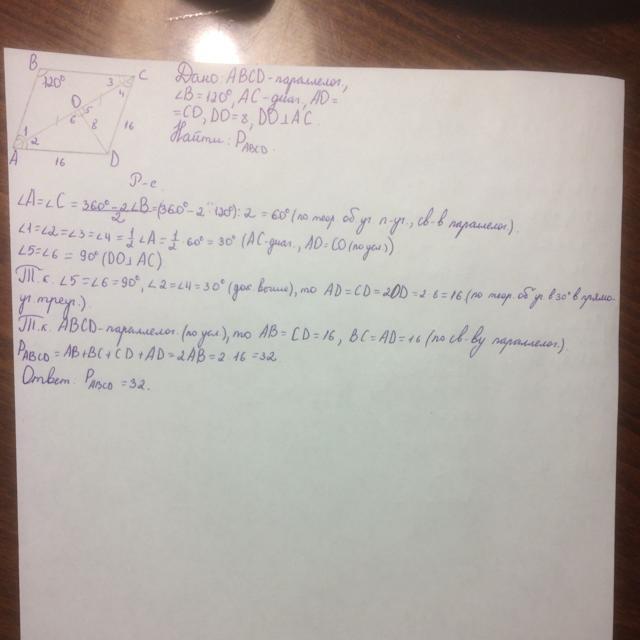 B
120°
3
C
4
O
5
6
8
16
1
2
A
16
D
Дано: ABCD - параллелог.,
∠B = 120°, AC - диаг., AD =
= CD, DO = 8, DO ⊥ AC.
Найти: P ABCD.
Р-е.
∠A = ∠C = (360° - 2∠B)/2 = (360° - 2·120°) : 2 = 60° (по теор. об уг. п-уг., св-в параллелог.).
∠1 = ∠2 = ∠3 = ∠4 = 1/2 ∠A = 1/2 · 60° = 30° (AC - диаг., AD = CD (по усл.))
∠5 = ∠6 = 90° (DO ⊥ AC)
Т.к. ∠5 = ∠6 = 90°, ∠2 = ∠4 = 30° (док. выше), то AD = CD = 2OD = 2·8 = 16 (по теор. об уг. в 30° в прямо-
уг. треуг.)
Т.к. ABCD - параллелог. (по усл.), то AB = CD = 16, BC = AD = 16 (по св-ву параллелог.).
P ABCD = AB + BC + CD + AD = 2AB = 2·16 = 32
Ответ: P ABCD = 32.